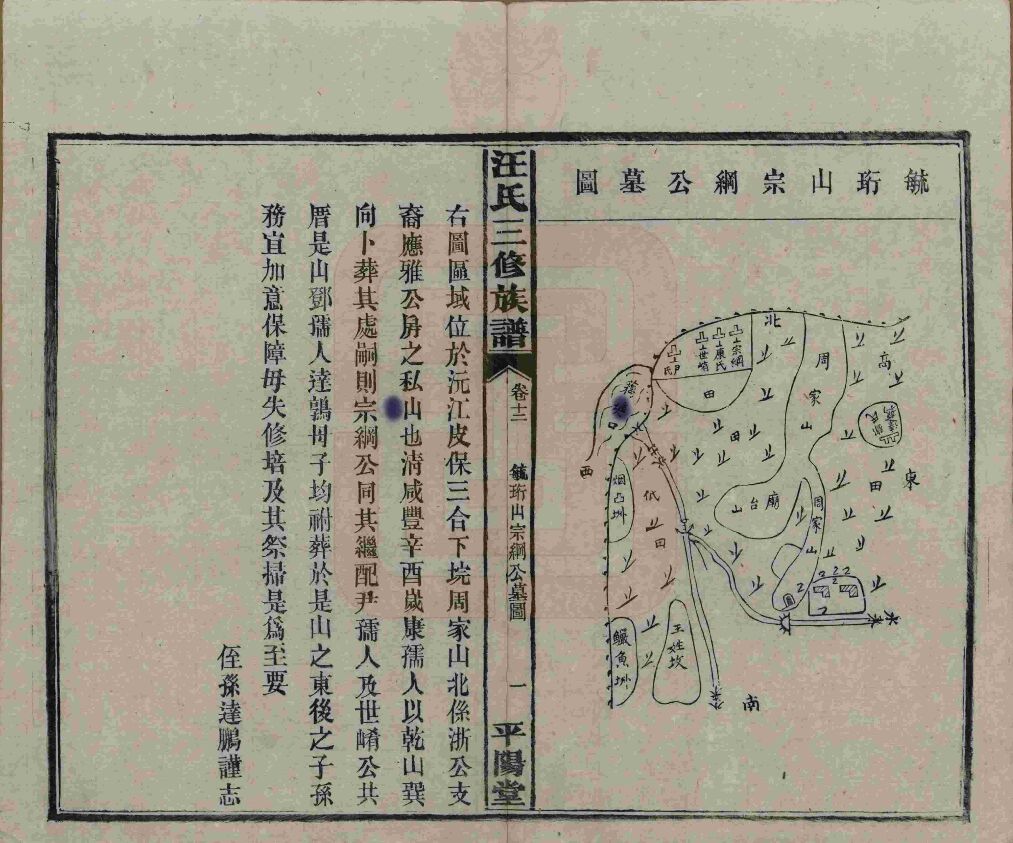 毓珩山宗綱公墓圖
北
宗綱
康氏
世崤
尹氏
田
周家山
高
東
田
田
廟台山
周家山
西
烟凸坤
低田
王姓坟
鱖魚坤
南
汪氏三修族譜
卷十二
毓珩山宗綱公墓圖
一
平陽堂
右圖區域位於沅江皮保三合下垸周家山北係浙公支
裔應雅公房之私山也清咸豐辛酉歲康孺人以乾山巽
向卜葬其處嗣則宗綱公同其繼配尹孺人及世崤公共
厝是山鄧孺人達鶉母子均祔葬於是山之東後之子孫
務宜加意保障毋失修培及其祭掃是為至要
侄孫達鵬謹志